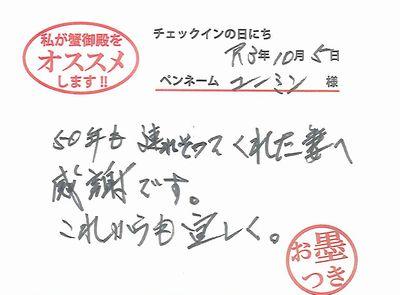 私が蟹御殿を
オススメ
します!!
チェックインの日にち
R3年10月5日
ペンネーム ユーミン 様
50年も連れそってくれた妻へ
感謝です。
これからも宜しく。
お墨
つき